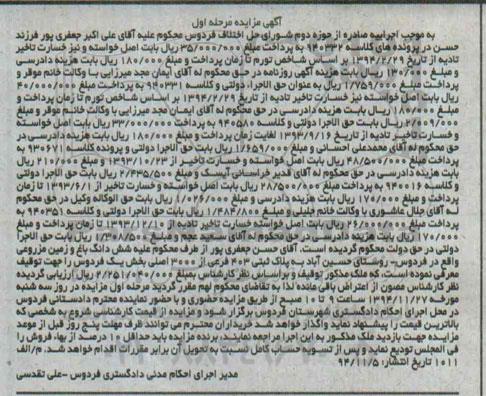 آگهی مزایده مرحله اول
به موجب اجراییه صادره از حوزه دوم شورای حل اختلاف فردوس محکوم علیه آقای علی اکبر جعفری پور فرزند
حسن در پرونده های کلاسه ۹۴۰۳۳۲ به پرداخت مبلغ ۳۵/۰۰۰/۰۰۰ ریال بابت اصل خواسته و نیز خسارت تاخیر
تادیه از تاریخ ۱۳۹۴/۲/۲۹ بر اساس شاخص تورم تا زمان پرداخت و مبلغ ۱۸۰/۰۰۰ ریال بابت هزینه دادرسی
و مبلغ ۱۳۰/۰۰۰ ریال بابت هزینه آگهی روزنامه در حق محکوم له آقای ایمان مجد میرزایی با وکالت خانم موقر و
پرداخت مبلغ ۱/۷۵۹/۰۰۰ ریال به عنوان حق الاجرا، دولتی و کلاسه ۹۴۰۳۳۱ به پرداخت مبلغ ۴۰/۰۰۰/۰۰۰
ریال بابت اصل خواسته نیز خسارت تاخیر تادیه از تاریخ ۱۳۹۴/۲/۲۹ بر اساس شاخص تورم تا زمان پرداخت و
مبلغ ۱۸۰/۰۰۰ ریال بابت هزینه دادرسی در حق محکوم له آقای ایمان مجد میرزایی با وکالت خانم موقر و مبلغ
۲/۰۰۹/۰۰۰ ریال بابت حق الاجرا دولتی و کلاسه ۹۴۰۵۸۰ به پرداخت ۳۳/۰۰۰/۰۰۰ ریال بابت اصل خواسته
و خسارت تاخیر تادیه از تاریخ ۱۳۹۳/۹/۱۶ لغایت زمان پرداخت و مبلغ ۱۸۰/۰۰۰ ریال بابت هزینه دادرسی در
حق محکوم له آقای محمدعلی احسانی و مبلغ ۱/۶۵۹/۰۰۰ ریال بابت حق الاجرا دولتی و پرونده ۹۳۰۶۷۱ به
پرداخت مبلغ ۴۸/۵۰۰/۰۰۰ ریال بابت اصل خواسته و خسارت تاخیر از ۱۳۹۳/۱۰/۲۳ و مبلغ ۲۱۰/۰۰۰ ریال
بابت هزینه دادرسی در حق محکوم له آقای قدیر خراسانی آیسک و مبلغ ۲/۴۳۵/۵۰۰ ریال بابت حق الاجرا دولتی
و کلاسه ۹۴۰۰۱۶ به پرداخت مبلغ ۲۸/۵۰۰/۰۰۰ ریال بابت اصل خواسته و خسارت تاخیر از ۱۳۹۳/۶/۱ تا زمان
پرداخت و مبلغ ۱۷۰/۰۰۰ ریال بابت هزینه دادرسی و مبلغ ۱/۰۲۶/۰۰۰ ریال بابت حق الوکاله وکیل در حق محکوم
له آقای جلال عاشوری با وکالت خانم جلیلی و مبلغ ۱/۴۸۴/۸۰۰ ریال بابت حق الاجرا دولتی و کلاسه ۹۴۰۳۵۱ به
پرداخت مبلغ ۲۶/۰۰۰/۰۰۰ ریال بابت اصل خواسته خسارت تاخیر تادیه از ۱۳۹۳/۱۲/۱۰ تا زمان پرداخت و مبلغ
۱۷۰/۰۰۰ ریال بابت هزینه دادرسی در حق محکوم له آقای سعید عجم و مبلغ ۱/۳۰۸/۵۰۰ ریال بابت حق الاجرا
دولتی در حق دولت محکوم گردیده است. آقای حسن جعفری پور از طرف محکوم علیه شش دانگ باغ و زمین مزروعی
واقع در فردوس- روستای حسین آباد به پلاک ثبتی ۴۰۳ فرعی از ۳۰۰۰ اصلی بخش یک فردوس را جهت توقیف
معرفی نموده است، که ملک مذکور توقیف و براساس نظر کارشناس بمبلغ ۲/۲۵۱/۰۴۰/۰۰۰ ریال ارزیابی گردیده
نظر کارشناس مصون از اعتراض باقی مانده لذا به تقاضای محکوم لهم مقرر گردید مرحله اول مزایده در روز سه شنبه
مورخه ۱۳۹۴/۱۱/۲۷ ساعت ۹ تا ۱۰ صبح از طریق مزایده حضوری و با حضور نماینده محترم دادستانی فردوس
در محل اجرای احکام دادگستری شهرستان فردوس برگزار شود و مزایده از قیمت کارشناسی شروع به شخصی که
بالاترین قیمت را پیشنهاد نماید واگذار خواهد شد خریداران محترم می توانند ظرف مهلت پنج روز قبل از موعد
مزایده جهت بازدید ملک مذکور به این اجرا مراجعه نمایند، برنده مزایده باید حداقل ۱۰ درصد از بها، فروش را
فی المجلس تودیع نماید و پس از تسویه حساب کامل نسبت به تحویل آن برابر مقررات اقدام خواهد شد. م/الف
۱۰۱۱ تاریخ انتشار: ۹۴/۱۱/۵
مدیر اجرای احکام مدنی دادگستری فردوس -علی تقدسی